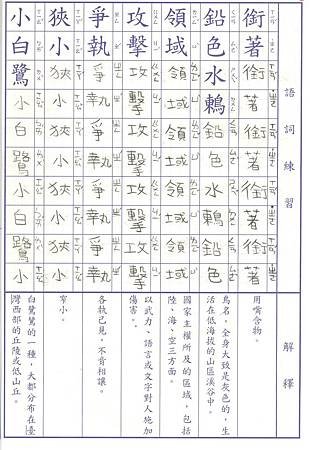 語詞練習
解釋
銜著銜著銜著銜著銜著
用嘴含物。
鉛色水鶇鉛色水鶇鉛色
鳥名，全身大致是灰色的，生
活在低海拔的山區溪谷中。
領域領域領域領域領域
國家主權所及的區域，包括
陸、海、空三方面。
攻擊攻擊攻擊攻擊攻擊
以武力、語言或文字對人施加
傷害。
爭執爭執爭執爭執爭執
各執己見，不肯相讓。
狹小狹小狹小狹小狹小
窄小。
小白鷺小白鷺小白鷺小
白鷺鷥的一種，大都分布在臺
灣西部的丘陵或低山丘。